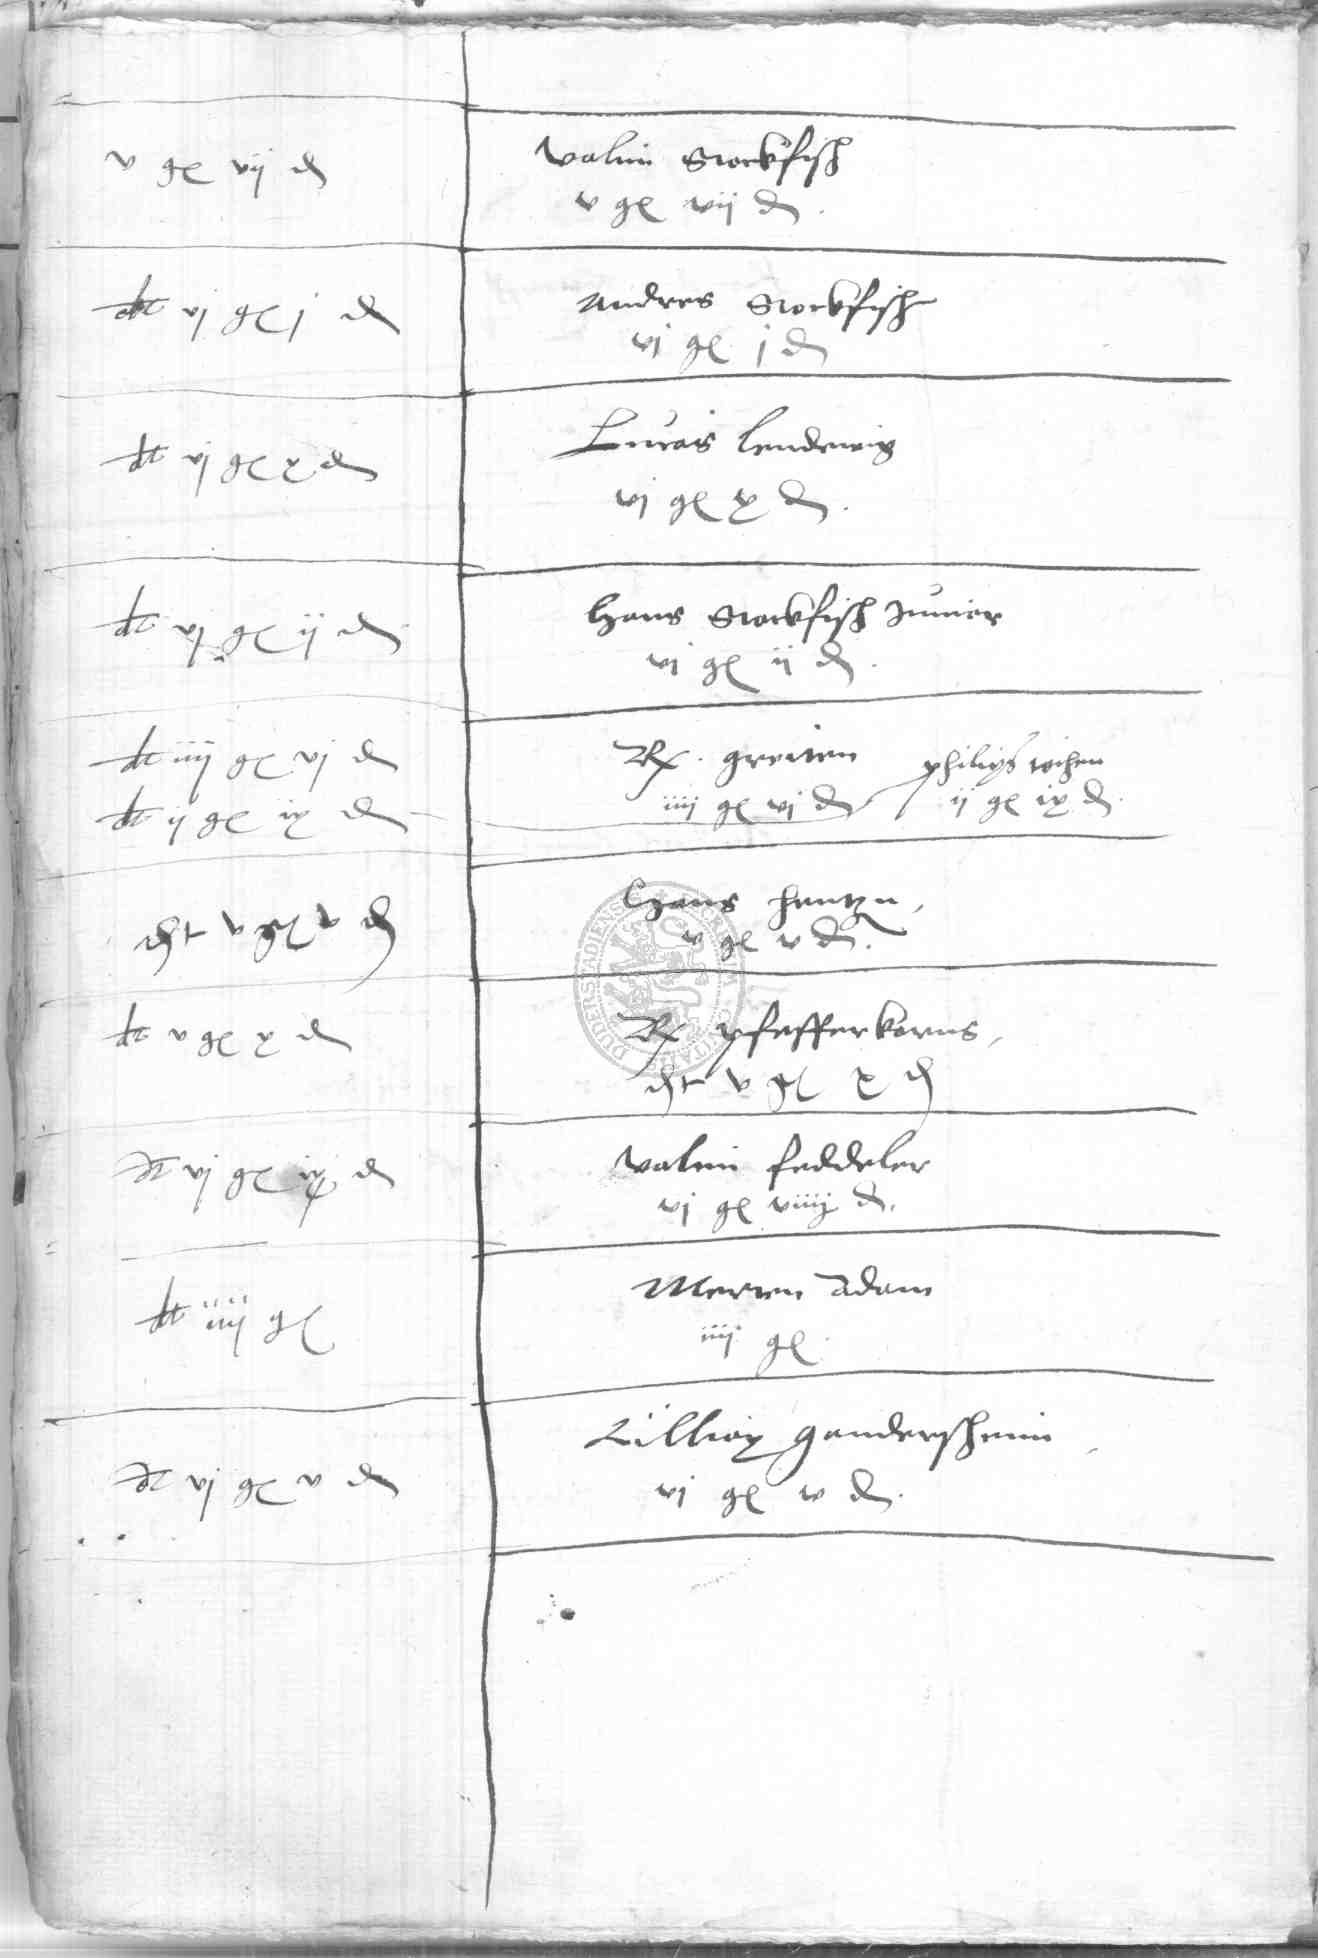 v gl vij d
Valtin Stockfisch
v gl vij d.
dt vj gl j d
Andres Stockfisch
vj gl j d
dt vj gl x d
Lucas Lendewig
vj gl x d.
dt vj gl ij d
Hans Stockfisch Junior
vj gl ij d.
dt iiij gl vj d
Rx. greiten philips wihen
dt ij gl ix d
iiij gl vj d ij gl ix d.
dt v gl v d
Hans hentzn
v gl v d.
dt v gl x d
Rx pfefferkorns
dt v gl x d
dt vj gl ix d
Valtin feddeler
vj gl viiij d.
dt iiij gl
Merten Adam
iiij gl.
dt vj gl v d
Cilliax gandersheim
vj gl v d.
DUDERSTADIENSIS CIVITATIS